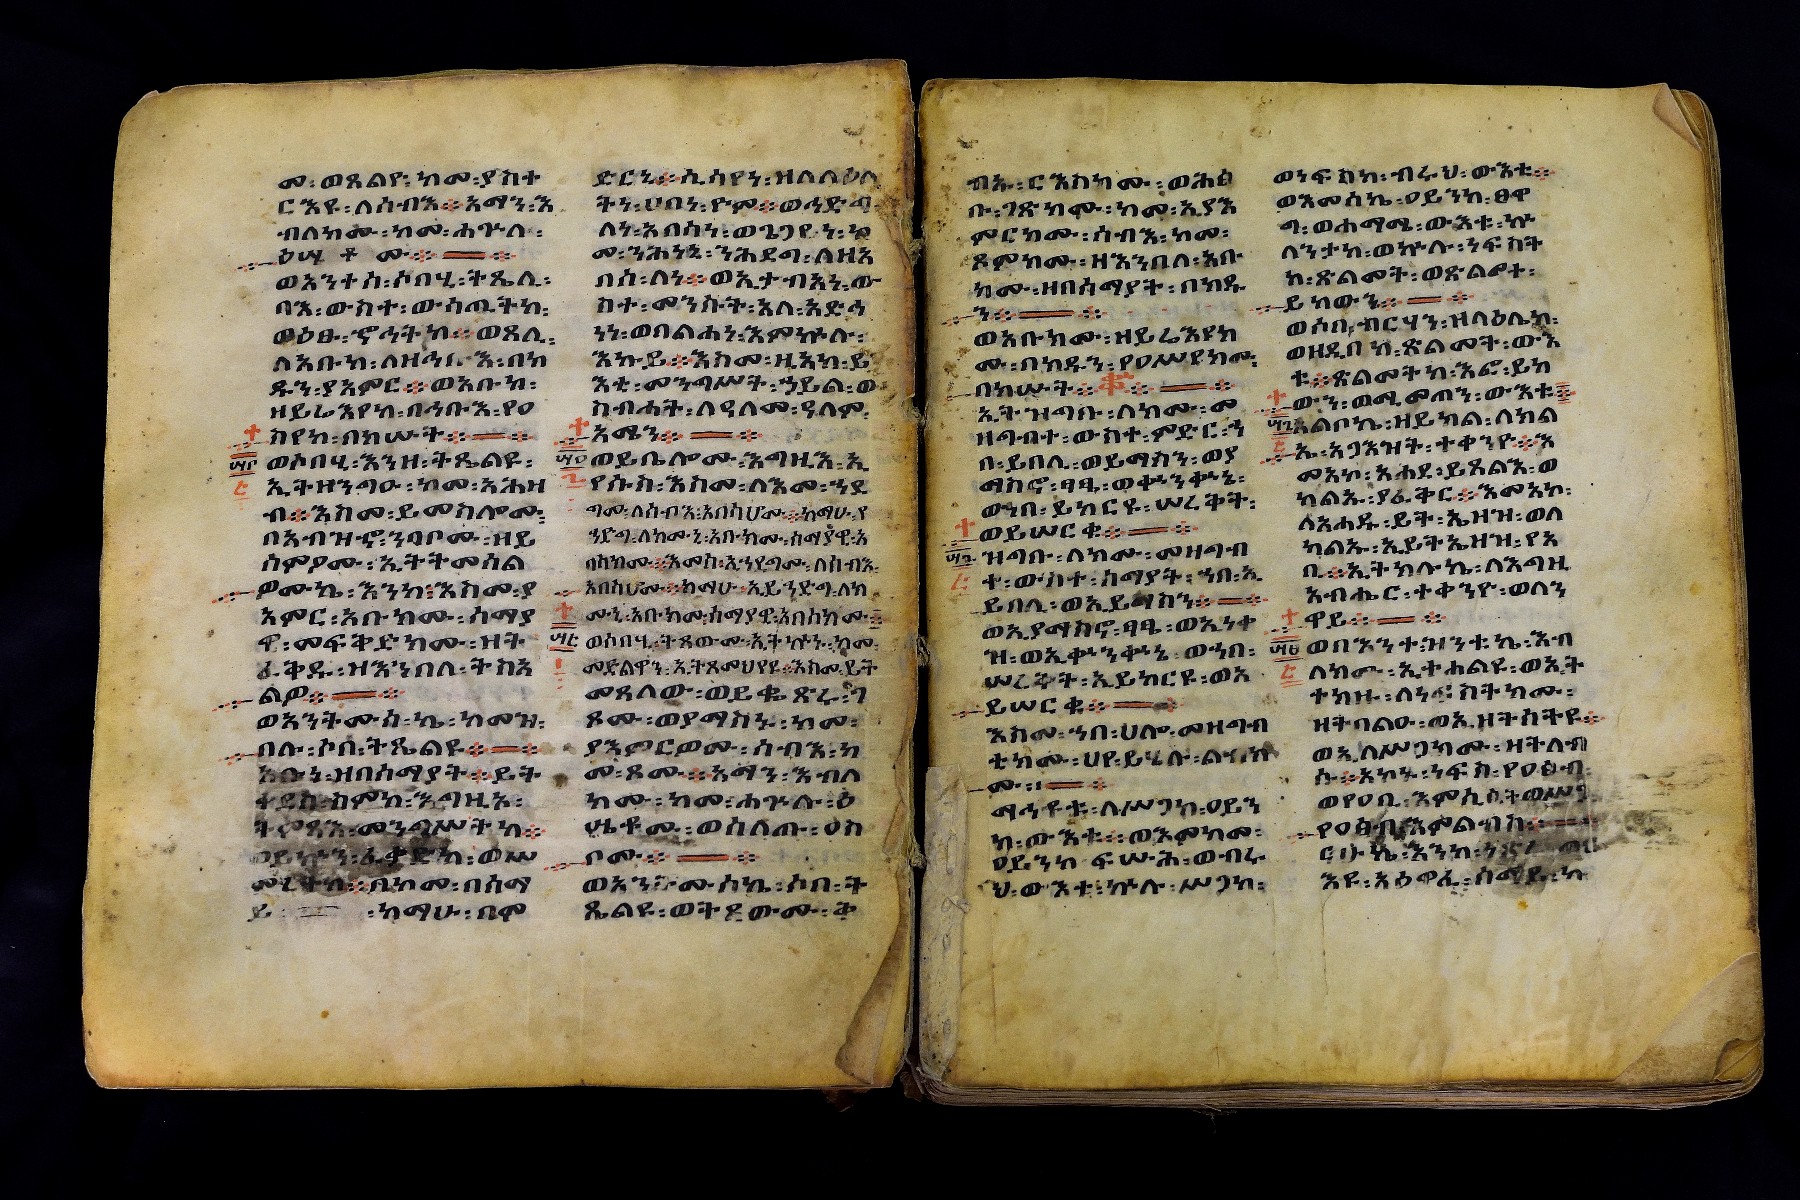 መ፡ወጸልየ፡ከመ፡ያስተ
ርእዩ፡ለሰብእ፡አማን፡እ
ብለክሙ፡ከመ፡ሐጕሉ፡
ዕሤቶሙ፨
ወአንተሰ፡ሶበሂ፡ትጼሊ፡
ባእ፡ውስተ፡ውሳጢትከ፡
ወዕፁ፡ኆኅትከ፡ወጸሊ፡
ለአቡከ፡ለዘኅቡእ፡በክ
ዱን፡ያአምር፡ወአቡከ፡
ዘይሬእየከ፡በኅቡእ፡የዐ
ስየከ፡በክሡት፨
ወሶበሂ፡እንዘ፡ትጼልዩ፡
ኢትዘንግዑ፡ከመ፡አሕዛ
ብ፨እስመ፡ይመስሎሙ፡
በአብዝኆ፡ንባቦሙ፡ዘይ
ሰምዖሙ፡ኢትትመሰል
ዎሙኬ፡እንከ፡እስመ፡ያ
አምር፡አቡክሙ፡ሰማያ
ዊ፡መፍቅድክሙ፡ዘት
ፈቅዱ፡ዘእንበለ፡ትስአ
ልዎ፨
ወአንትሙሰ፡ኬ፡ከመዝ፡
በሉ፡ሶበ፡ትጼልዩ፨
አቡነ፡ዘበሰማያት፨ይት
ቀደስ፡ስምከ፡
ትምጻእ፡መንግሥትከ፨
ወይኩን፡ፈቃድከ፡ወሥ
በከመ፡በሰማ
ይ፡ከማሁ፡በም
ድርኒ፨ሲሳየነ፡ዘለለዕለ
ትነ፡ሀበነ፡ዮም፨ወኅድግ
ለነ፡አበሳነ፡ወጌጋየነ፡ከ
መ፡ንሕነኒ፡ንሕደግ፡ለዘአ
በሰ፡ለነ፨ወኢታብአነ፡ው
ስተ፡መንሱት፡አላ፡አድኅ
ነነ፡ወባልሐነ፡እምኵሉ፡
እኩይ፨እስመ፡ዚአከ፡ይ
እቲ፡መንግሥት፡ኀይል፡ወ
ስብሐት፡ለዓለመ፡ዓለም፡
አሜን፨
ወይቤሎሙ፡እግዚእ፡ኢ
የሱስ፡እስመ፡ለእመ፡ኀደ
ግሙ፡ለሰብእ፡አበሳሆሙ፨ከማሁ፡የ
ኀድግ፡ለክሙኒ፡አቡክሙ፡ሰማያዊ፡አ
በሳክሙ፨እመሰ፡ኢኀደግሙ፡ለሰብእ፡
አበሳሆሙ፨ከማሁ፡ኢይኀድግ፡ለክ
ሙኒ፡አቡክሙ፡ሰማያዊ፡አበሳክሙ፨
ወሶበሂ፡ትጸውሙ፡ኢትኩኑ፡ከመ፡
መድልዋን፡
መጸለው፡ወይቄጽሩ፡ገ
ጾሙ፡ወያማስኑ፡ከመ፡
ያእምርዎሙ፡ሰብእ፡ከ
መ፡ጾሙ፨አማን፡እብለ
ክሙ፡ከመ፡ሐጕሉ፡ዕ
ሤቶሙ፡ወሰለጡ፡ዐስ
ቦሙ፨
ወአንትሙሰኬ፡ሶበ፡ት
ጼልዩ፡ወትጸውሙ፡ቅ
ብኡ፡ርእስክሙ፡ወሕፅ
ቡ፡ገጽክሙ፡ከመ፡ኢያእ
ምርክሙ፡ሰብእ፡ከመ፡
ጾምክሙ፡ዘእንበለ፡አቡ
ክሙ፡ዘበሰማያት፡በክዱ
ን፨
ወአቡክሙ፡ዘይሬእየክ
ሙ፡በክዱን፡የዐሥየክሙ፡
በክሡት፨
ኢትዝግቡ፡ለክሙ፡መ
ዛግብተ፡ውስተ፡ምድር፡ኀ
በ፡ይበሊ፡ወይማስን፡ወያ
ማስኖ፡ፃፄ፡ወቍንቍኔ፡
ወኀበ፡ይከርዩ፡ሠረቅት፡
ወይሠርቁ፨
ዝግቡ፡ለክሙ፡መዛግብ
ተ፡ውስተ፡ሰማያት፡ኀበ፡ኢ
ይበሊ፡ወኢይማስን፨
ወኢያማስኖ፡ፃፄ፡ወእንተ
ዝ፡ወኢቍንቍኔ፡ወኀበ፡
ሠረቅት፡ኢይከርዩ፡ወኢ
ይሠርቁ፨
እስመ፡ኀበ፡ሀሎ፡መዛግብ
ቲክሙ፡ህየ፡ይሄሉ፡ልብክ
ሙ፨
ማኅቶቱ፡ለሥጋከ፡ዐይን
ከ፡ውእቱ፨ወእምከመ፡
ዐይንከ፡ፍሡሕ፡ወብሩ
ህ፡ውእቱ፡ኵሉ፡ሥጋከ፡
ወነፍስከ፡ብሩህ፡ውእቱ፨
ወእመሰኬ፡ዐይንከ፡ፀዋ
ግ፡ወሐማሚ፡ውእቱ፡ኵ
ለንታከ፡ወኵሉ፡ነፍስት
ከ፡ጽልመት፡ወጽልሞተ፡
ይከውን፨
ወሶበ፡ብርሃን፡ዘላዕሌከ፡
ወዘዲበ ከ፡ጽልመት፡ውእ
ቱ፨ጽልመትከ፡እፎ፡ይከ
ውን፡ወሚመጠን፡ውእቱ፨
አልቦኬ፡ዘይክል፡ለክል
ኤ፡አጋእዝት፡ተቀንዮ፨እ
መአኮ፡አሐደ፡ይጸልእ፡ወ
ካልኡ፡ያፈቅር፨እመአኮ፡
ለአሐዱ፡ይትኤዘዝ፡ወለ
ካልኡ፡ኢይትኤዘዝ፡የአ
ቢ፨ኢትክሉኬ፡ለእግዚ
አብሔር፡ተቀንዮ፡ወለን
ዋይ፨
ወበእንተ፡ዝንቱኬ፡እብ
ለክሙ፡ኢተሐልዩ፡ወኢት
ተክዙ፡ለነፍስትክሙ፡
ዘትባልዑ፡ወኢዘትስትዩ፨
ወኢለሥጋክሙ፡ዘትለብ
ሱ፨አኮኑ፡ነፍስ፡የዐፅብ፡
ወየዐቢ፡እምሲሲት፡ወሥጋ
የዐፅብ፡እምልብስ፨
እዩ፡አዕዋፈ፡ሰማይ፡ከ